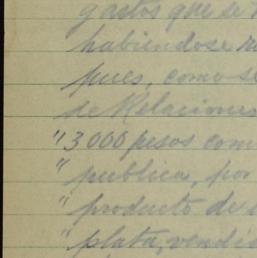 gastos que se
habiendose re
pues, como se
de Relaciones
"13 000 pesos com
" publica, por
" producto de
" plata, vendi